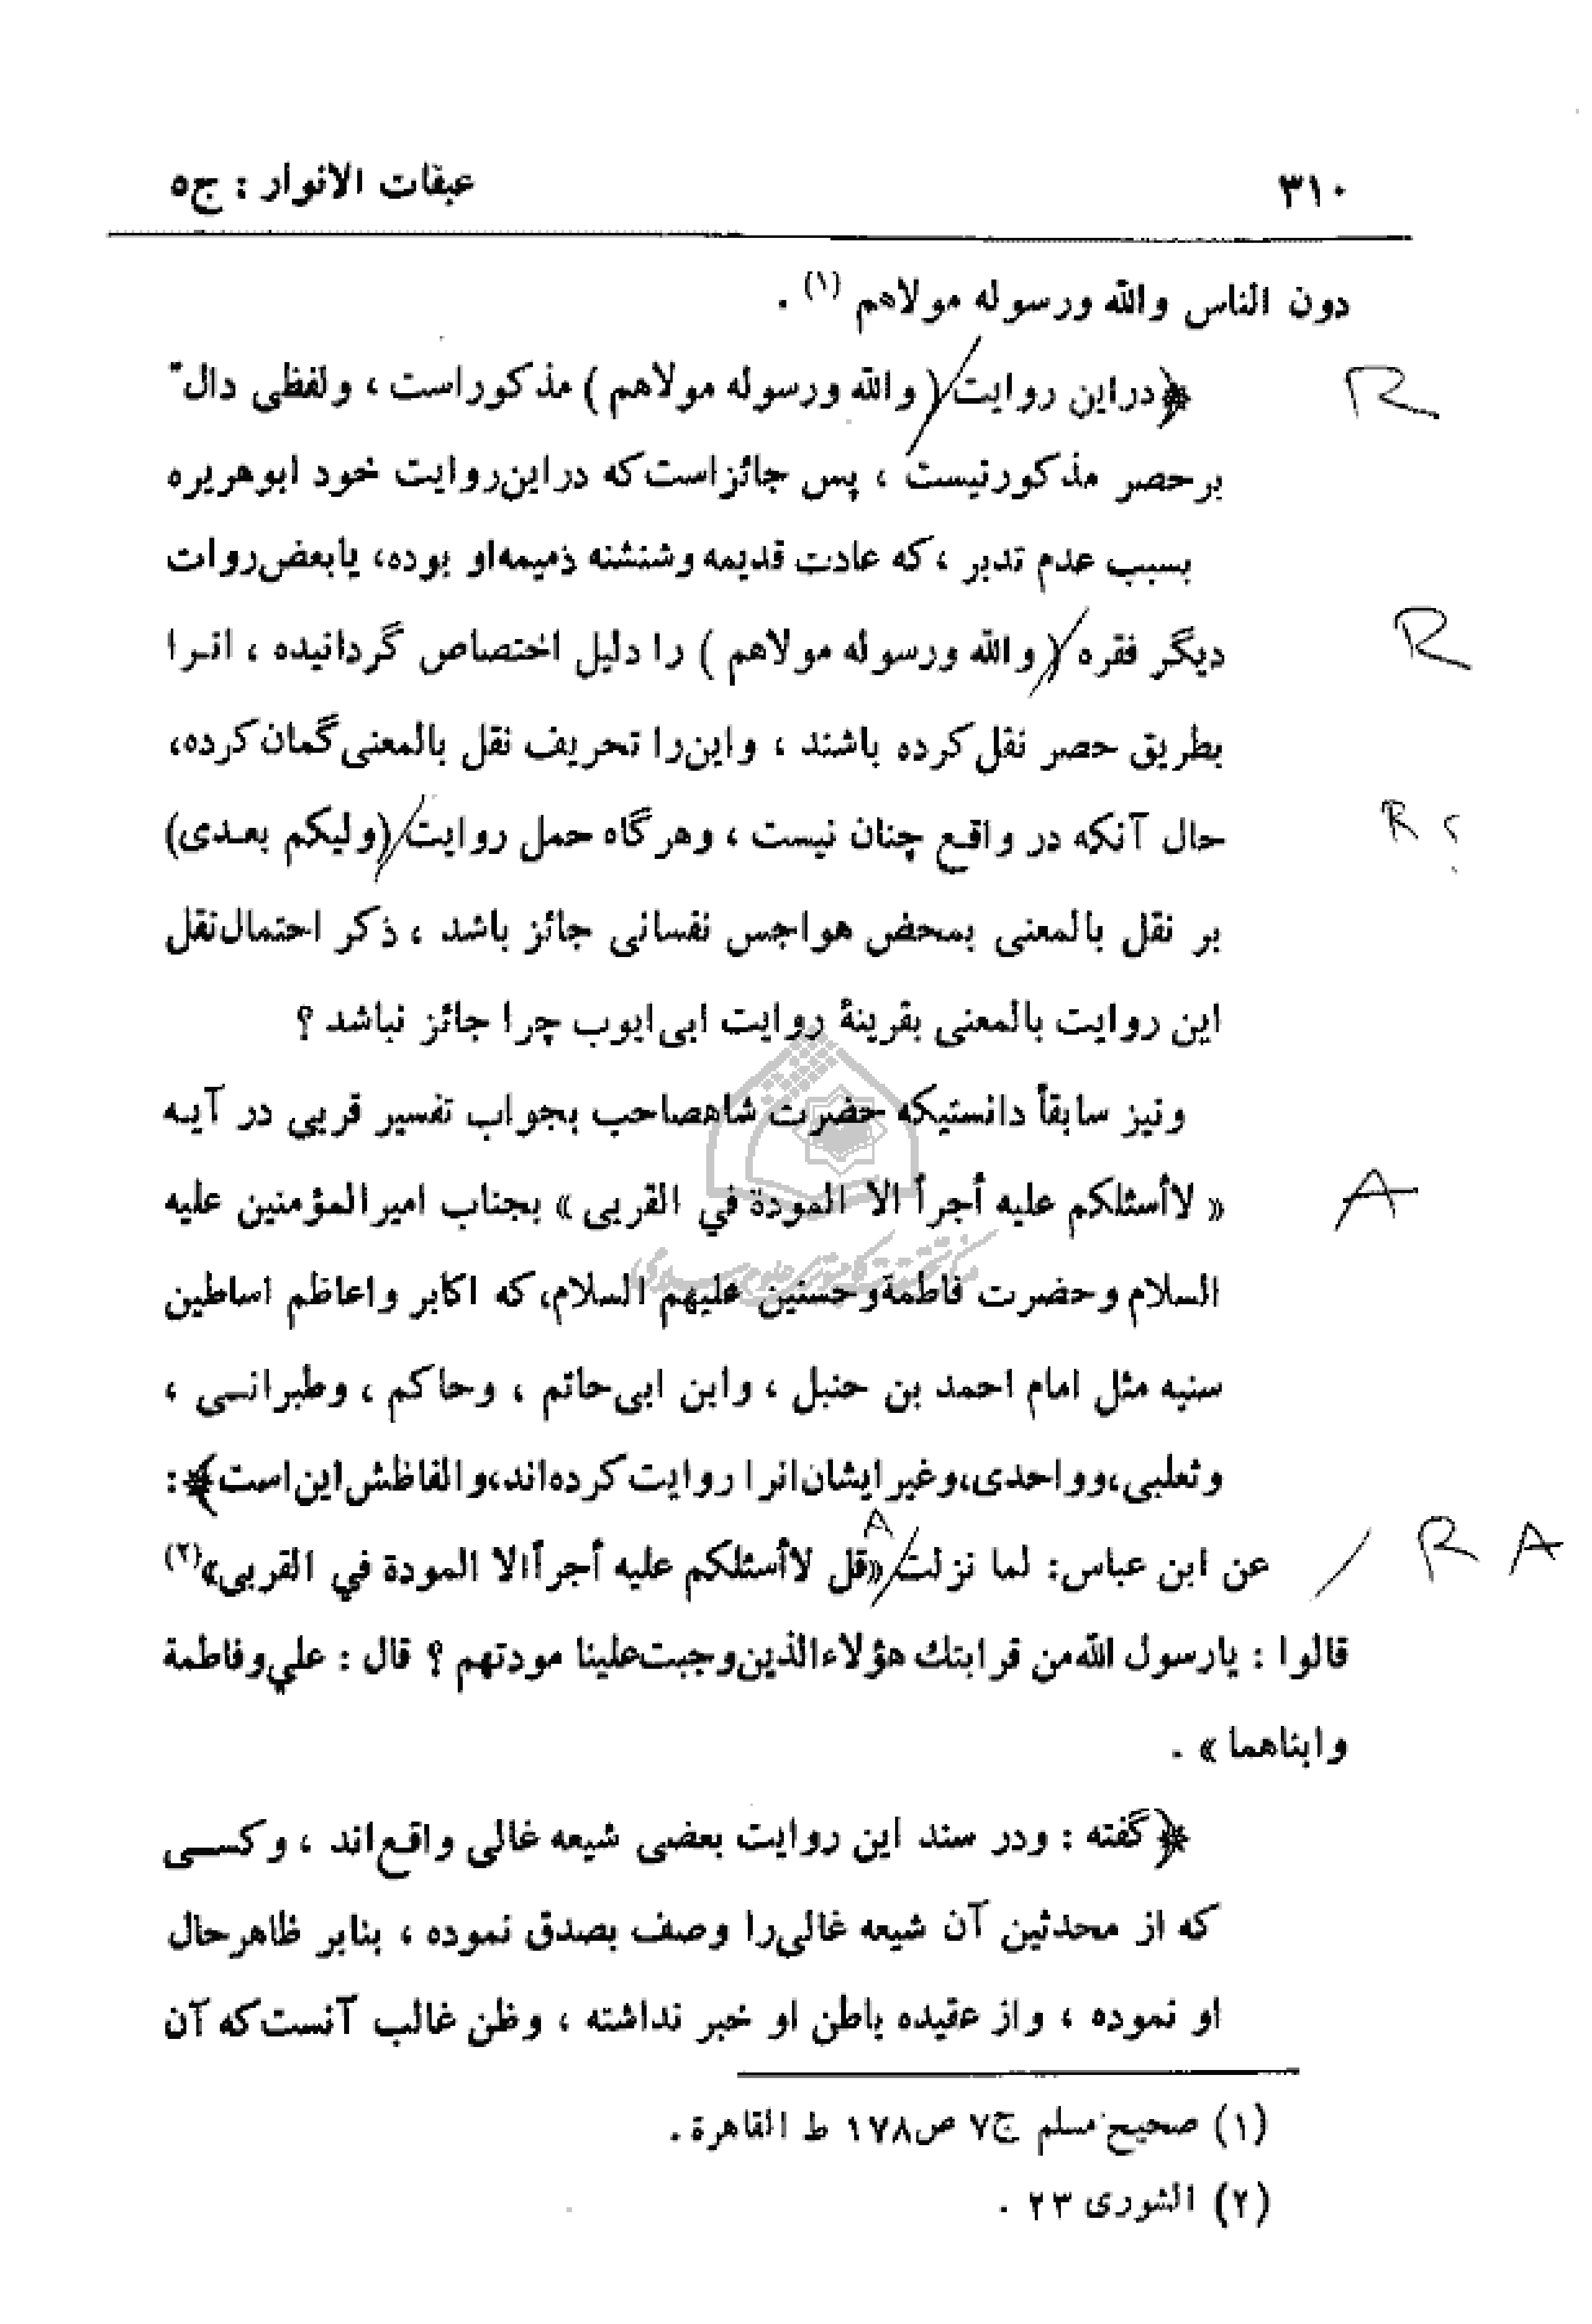 ۳۱۰ عبقات الانوار : ج۵
دون الناس والله ورسوله مولاهم (۱) .
﴿دراین روایت (والله ورسوله مولاهم) مذکوراست ، ولفظی دالّ R
برحصر مذکورنیست ، پس جائزاست که دراین روایت خود ابوهریره
بسبب عدم تدبر ، که عادت قدیمه وشنشنه ذمیمه او بوده، یابعض روات
دیگر فقره (والله ورسوله مولاهم) را دلیل اختصاص گردانیده ، انـرا R
بطریق حصر نقل کرده باشند ، واین را تحریف نقل بالمعنی گمان کرده،
حال آنکه در واقـع چنان نیست ، وهرگاه حمل روایت (ولیکم بعـدی) R ؟
بر نقل بالمعنی بمحض هواجس نفسانی جائز باشد ، ذکر احتمال نقل
این روایت بالمعنی بقرینۀ روایت ابی ایوب چرا جائز نباشد ؟
ونیز سابقاً دانستیکه حضرت شاهصاحب بجواب تفسیر قربی در آیـه
« لاأسئلکم علیه أجراً الا المودة في القربی » بجناب امیرالمؤمنین علیه A
السلام وحضرت فاطمةوحسنین علیهم السلام، که اکابر واعاظم اساطین
سنیه مثل امام احمد بن حنبل ، وابن ابی حاتم ، وحاکم ، وطبرانـی ،
وثعلبی، وواحدی، وغیرایشان انرا روایت کرده اند، والفاظش این است﴾:
عن ابن عباس: لما نزلت «قل لاأسئلکم علیه أجراًالا المودة في القربی»(۲) A / R A
قالوا : یارسول الله من قرابتك هؤلاءالذین وجبت علینا مودتهم ؟ قال : علي وفاطمة
وابناهما » .
﴿گفته : ودر سند این روایت بعضی شیعه غالی واقـع اند ، وکسـی
که از محدثین آن شیعه غالی را وصف بصدق نموده ، بنابر ظاهرحال
او نموده ، واز عقیده باطن او خبر نداشته ، وظن غالب آنست که آن
(۱) صحیح مسلم ج۷ ص۱۷۸ ط القاهرة .
(۲) الشوری ۲۳ .